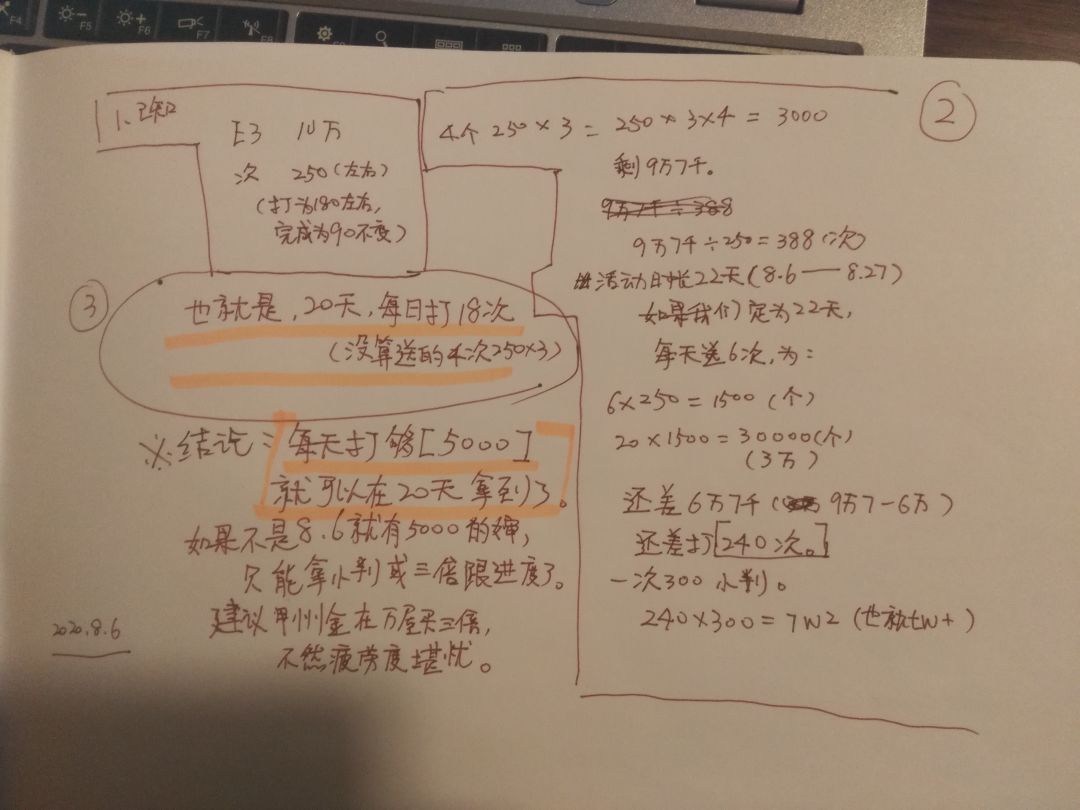 1、已知
E3 10万
次 250(左右)
(打为180左右,
完成为90不变)
②
4个 250×3 = 250×3×4 = 3000
剩9万7千。
9万7千÷388
9万7千÷250=388(次)
活动时长22天(8.6——8.27)
如果我们定为22天,
每天送6次,为:
6×250=1500(个)
20×1500=30000(个)
(3万)
还差6万7千(9万7-6万)
还差打[240次。]
一次300小判。
240×300=7W2(也就七W+)
③
也就是,20天,每日打18次
(没算送的4次250×3)
※结论:每天打够[5000]
就可以在20天拿到了。
如果不是8.6就有5000的婶,
只能拿小判或三倍跟进度了。
建议甲州金在万屋买三倍,
不然疲劳度堪忧。
2020.8.6
F4
F5
F6
F7
F8